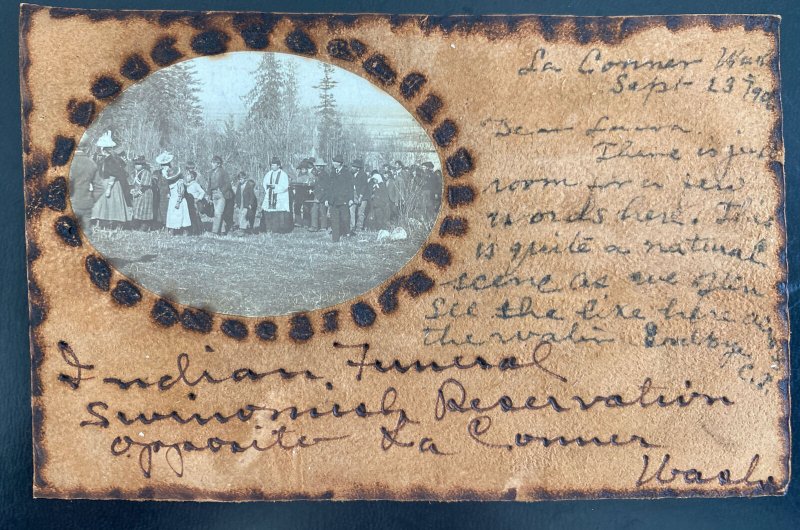 La Conner Wash
Sept 23rd 190
Dear Laura
There is just
room for a few
words here. This
is quite a natural
scene as we often
see the like here across
the water Goodbye,
C.
Indian Funeral
Swinomish Reservation
opposite La Conner
Wash